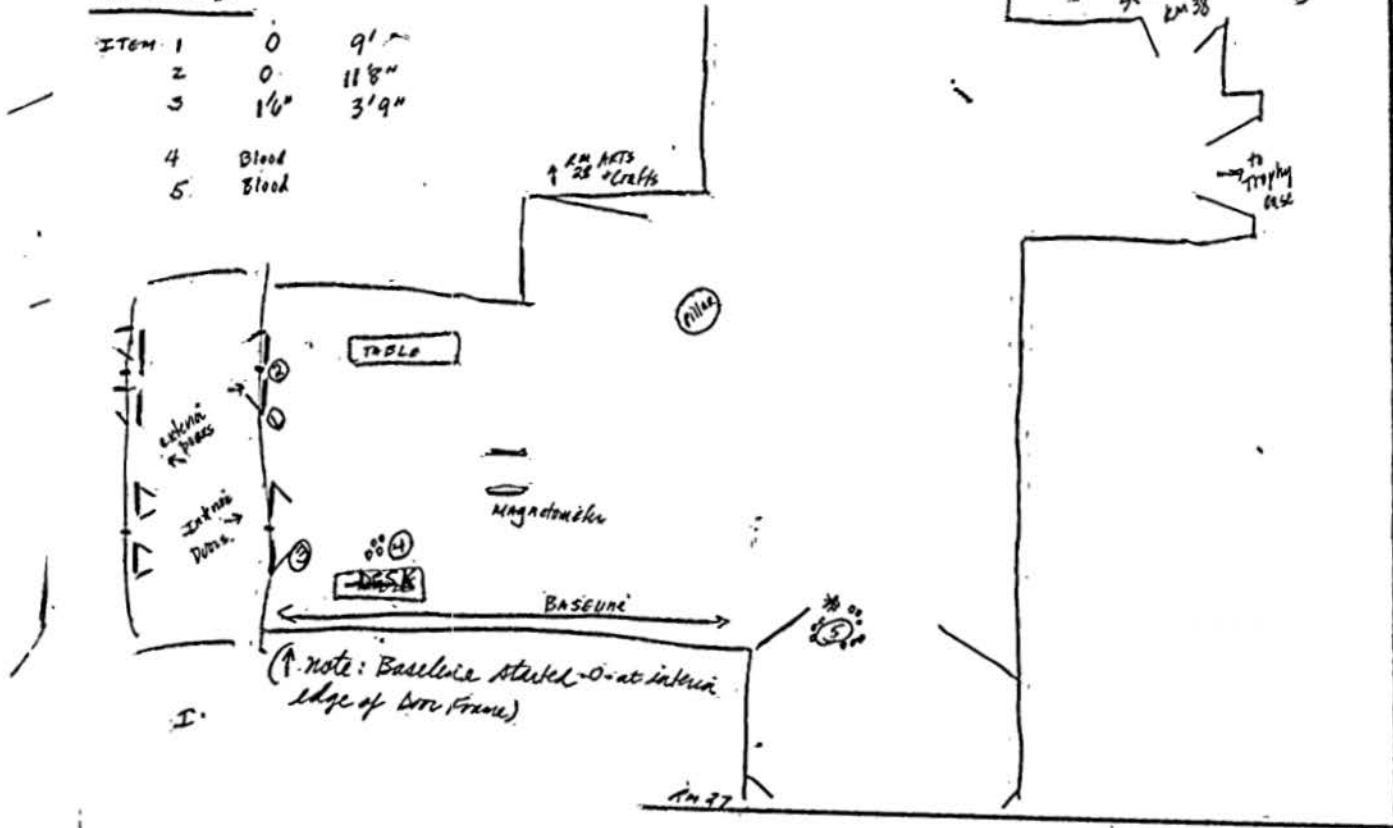 RM 38
ITEM 1 0 9'
2 0 11'8"
3 1'6" 3'9"
4 Blood
5. Blood
↑ RM 28 ARTS
+ Crafts
→ to
Trophy
case
Pillar
TABLE
2
1
exterior
Doors
Interior
Doors.
Magnetometer
3
4
DESK
BASELINE
5
(↑ note: Baseline started -0- at interior
edge of Door Frame)
I.